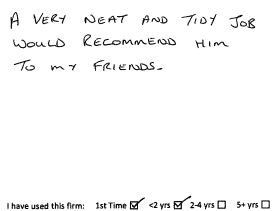 A VERY NEAT AND TIDY JOB
WOULD RECOMMEND HIM
TO MY FRIENDS.
I have used this firm: 1st Time ☑ <2 yrs ☑ 2-4 yrs ☐ 5+ yrs ☐